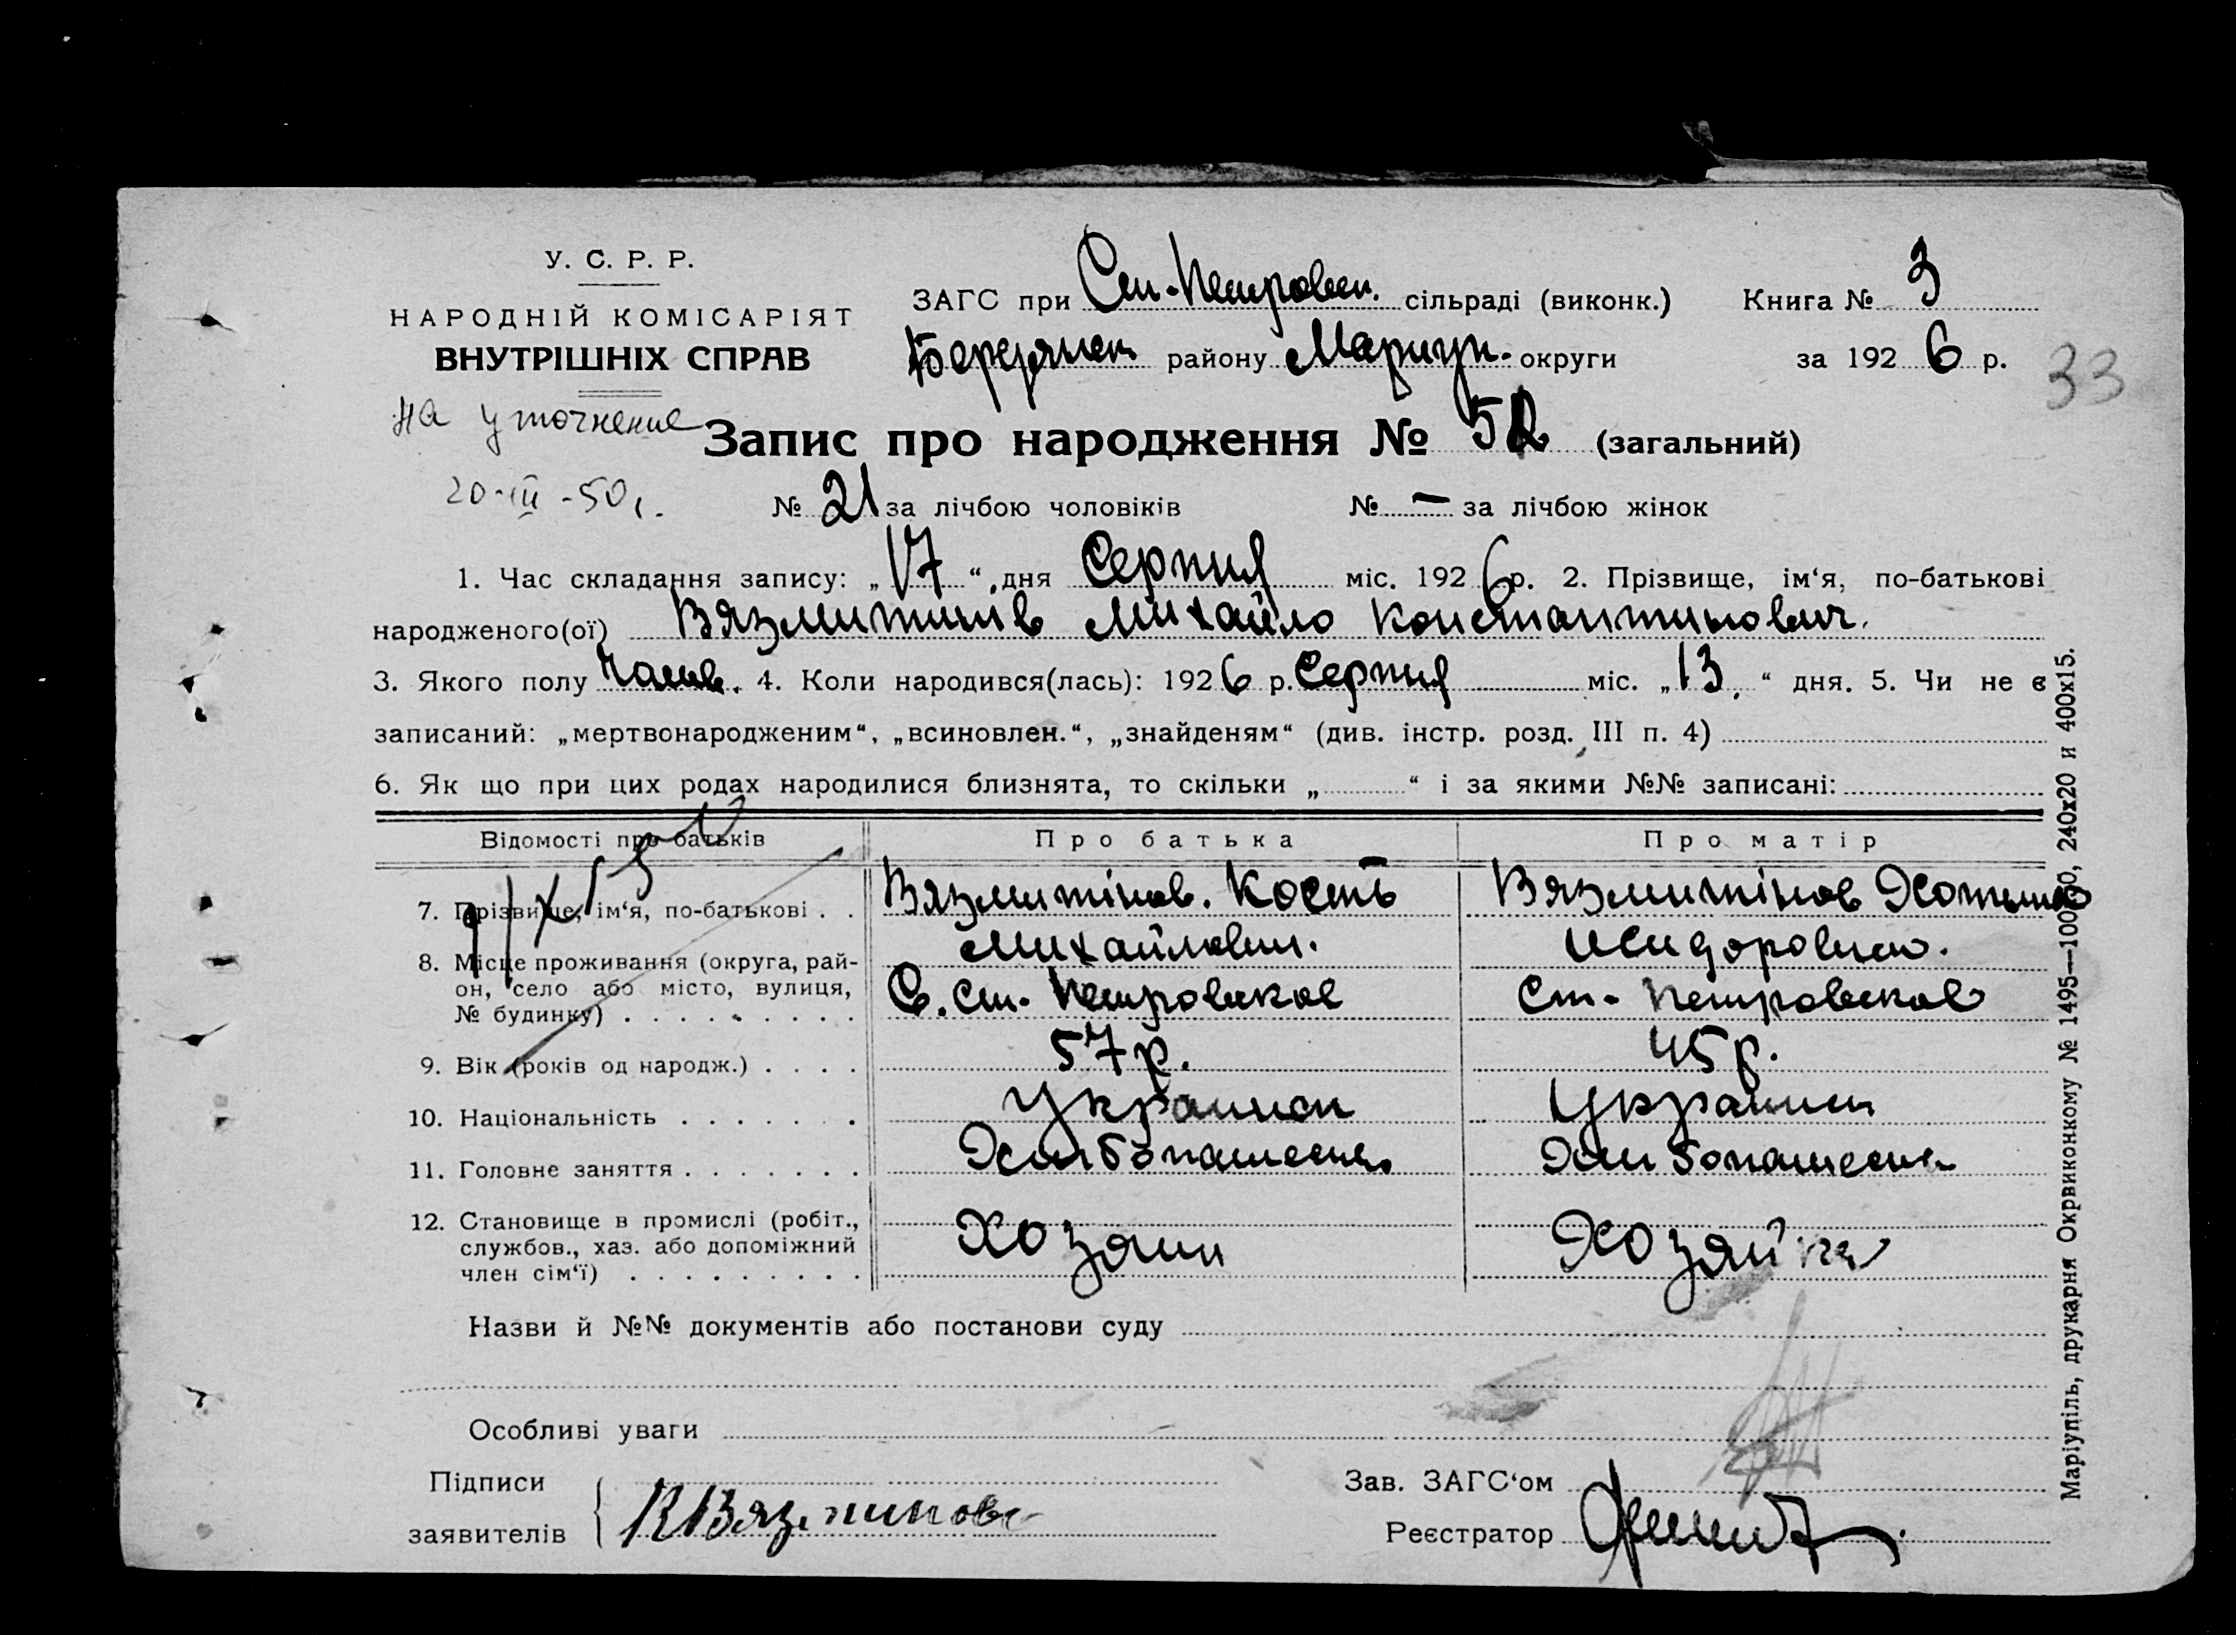 У. С. Р. Р.
НАРОДНІЙ КОМІСАРІЯТ
ВНУТРІШНІХ СПРАВ
ЗАГС при Ст.-Петровск. сільраді (виконк.) Книга № 3
Бердянск району Мариуп. округи за 1926 р.
33
На уточнение
20-III-50г.
Запис про народження № 52 (загальний)
№ 21 за лічбою чоловіків № — за лічбою жінок
1. Час складання запису: „17“ дня Серпня міс. 1926 р. 2. Прізвище, ім‘я, по-батькові
народженого(ої) Вязмитинів Михайло Константинович.
3. Якого полу Чолов. 4. Коли народився(лась): 1926 р. Серпня міс. „13“ дня. 5. Чи не є
записаний: „мертвонародженим“, „всиновлен.“, „знайденям“ (див. інстр. розд. III п. 4)
6. Як що при цих родах народилися близнята, то скільки „ “ і за якими №№ записані:
Відомості про батьків Про батька Про матір
7. Прізвище, ім‘я, по-батькові . . Вязмитінов. Кость Вязмитінов
Михайлович.
8. Місце проживання (округа, рай-
он, село або місто, вулиця, С. Ст. Петровское Ст. Петровское
№ будинку) . . . . . . . . .
9. Вік (років од народж.) . . . . 57 р. 45 р.
10. Національність . . . . . . . Украинец Украинец
11. Головне заняття . . . . . . . Хлибопашест Хлибопашест
12. Становище в промислі (робіт.,
службов., хаз. або допоміжний Хозяин Хозяйка
член сім‘ї) . . . . . . . . .
Назви й №№ документів або постанови суду
Особливі уваги
Підписи Зав. ЗАГС‘ом
заявителів К Вязмитинов Реєстратор
Маріупіль, друкарня Окрвиконкому № 1495—100 0, 240x20 и 400x15.